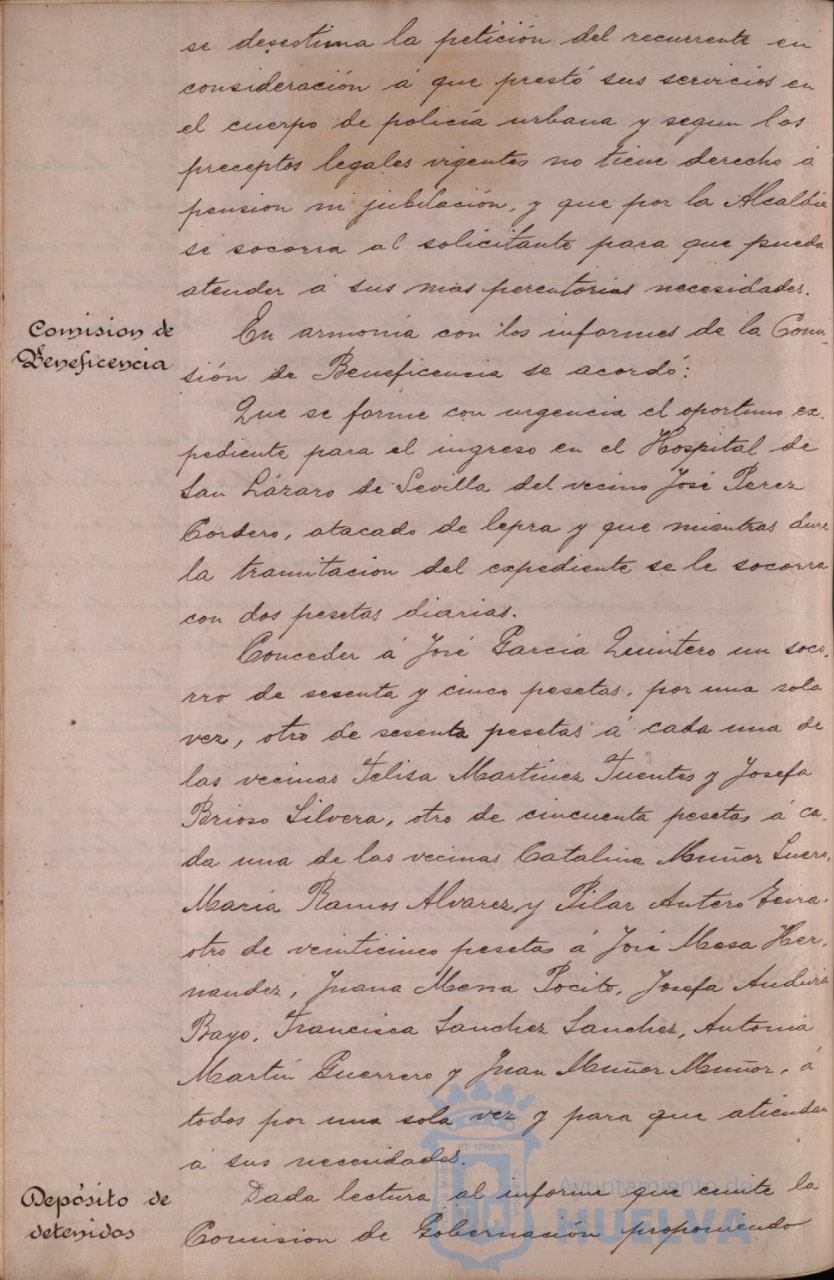 se desestima la petición del recurrente en
consideración á que prestó sus servicios en
el cuerpo de policía urbana y segun los
preceptos legales vigentes no tiene derecho á
pension ni jubilación, y que por la Alcaldia
se socorra al solicitante para que pueda
atender á sus mas perentorias necesidades.
Comision de
Beneficencia
En armonía con los informes de la Comi-
sión de Beneficencia se acordó:
Que se forme con urgencia el oportuno ex-
pediente para el ingreso en el Hospital de
San Lázaro de Sevilla del vecino José Perez
Cordero, atacado de lepra y que mientras dure
la tramitacion del expediente se le socorra
con dos pesetas diarias.
Conceder á José García Quintero un soco-
rro de sesenta y cinco pesetas, por una sola
vez, otro de sesenta pesetas á cada una de
las vecinas Felisa Martinez Fuentes y Josefa
Brioso Silvera, otro de cincuenta pesetas á ca-
da una de las vecinas Catalina Muñoz Suero,
María Ramos Alvarez, y Pilar Antero
otro de veinticinco pesetas á José Mesa Her-
nandez, Juana Mena Pocito, Josefa
Bayo, Francisca Sanchez Sanchez, Antonia
Martín Guerrero y Juan Muñoz Muñoz, á
todos por una sola vez y para que atiendan
á sus necesidades.
Depósito de
detenidos
Dada lectura al informe que emite la
Comision de Gobernación proponiendo
Ayuntamiento de
HUELVA